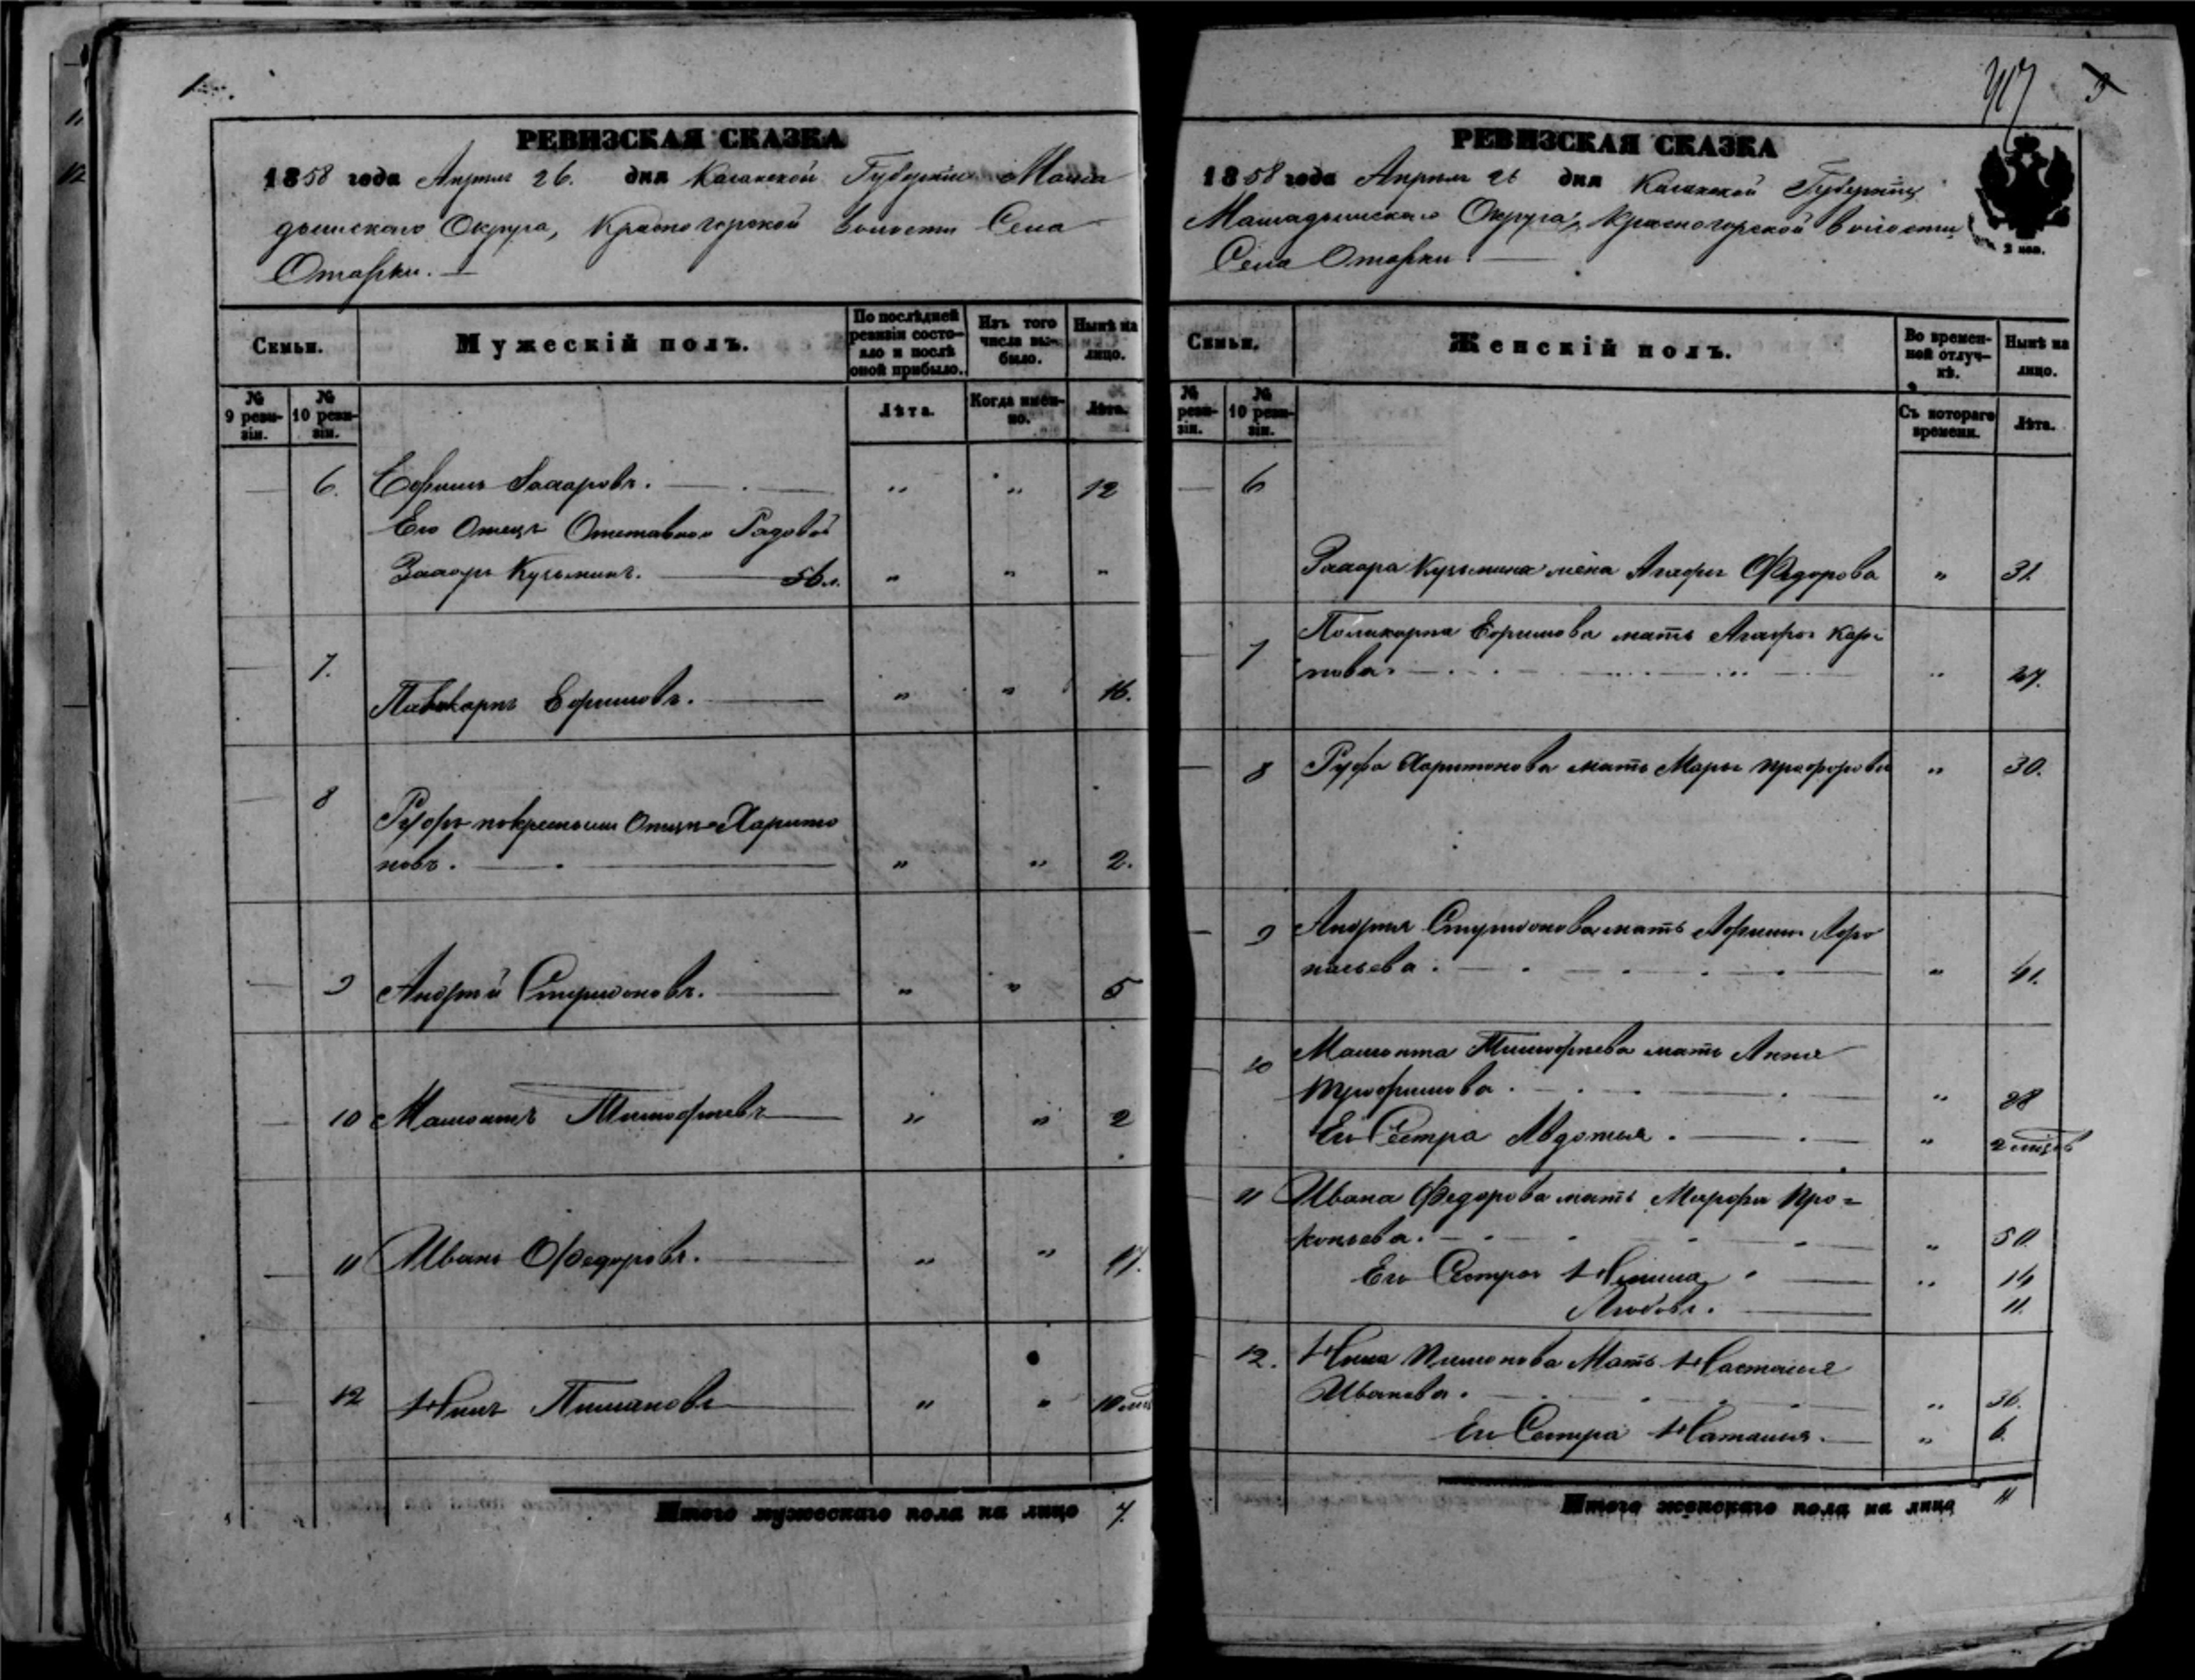 РЕВИЗСКАЯ СКАЗКА
1858 года Апреля 26. дня Казанской Губернии Мама
дышскаго Округа, Красногорской волости Села
Отарки.
Семьи.
Мужескій полъ.
По послѣдней ревизіи состояло и послѣ оной прибыло.
Изъ того числа выбыло.
Нынѣ на лицо.
№ 9 ревизіи.
№ 10 ревизіи.
Лѣта.
Когда именно.
Лѣта.
6. Ефимъ Захаровъ. " " 12
Его Отецъ Отставной Рядовой
Захаръ Кузьминъ. 56 л. " " "
7.
Поликарпъ Ефимовъ. " " 16.
8
Руфъ по крестному Отцу Харито
новъ. " " 2.
9 Андрей Спиридоновъ. " " 5
10 Мамонтъ Тимофеевъ " " 2
11 Иванъ Федоровъ. " " 17.
12 Нилъ Пимановъ " " 10
Итого мужескаго пола на лицо 7.
3
РЕВИЗСКАЯ СКАЗКА
1858 года Апреля 26 дня Казанской Губерніи
Мамадышскаго Округа, Красногорской волости
Села Отарки.
2 коп.
Семьи.
Женскій полъ.
Во временной отлучкѣ.
Нынѣ на лицо.
№ ревизіи.
№ 10 ревизіи.
Съ котораго времени.
Лѣта.
6
Захара Кузьмина жена Агафья Федорова " 31.
7 Поликарпа Ефимова мать Агафья Кар-
пова. " 47.
8 Руфа Харитонова мать Марья " 30.
9 Андрея Спиридонова мать Афимья Афо
насьева. " 41.
10 Мамонта Тимофеева мать Анна
Трофимова. " 28
Его Сестра Авдотья. " 2
11 Ивана Федорова мать Марфа Про=
копьева. " 50.
Его Сестры " 14
Любовь. 11.
12. Нила Пимонова Мать Настасья
Иванова. " 36.
Его Сестра Наталья. " 6.
Итого женскаго пола на лицо 11